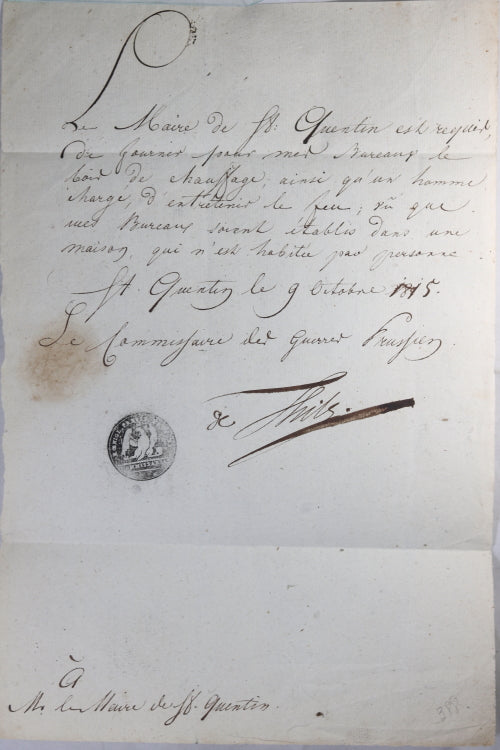 Le Maire de St: Quentin est requis,
de fournir pour mes Bureaux le
bois de chauffage, ainsi qu'un homme
chargé, d'entretenir le feu; vû que
mes Bureaux soient établis dans une
maison, qui n'est habitée par personne
St. Quentin le 9 Octobre 1815.
Le Commissaire des Guerres Prussien
de
à
Mr le Maire de St. Quentin.
399